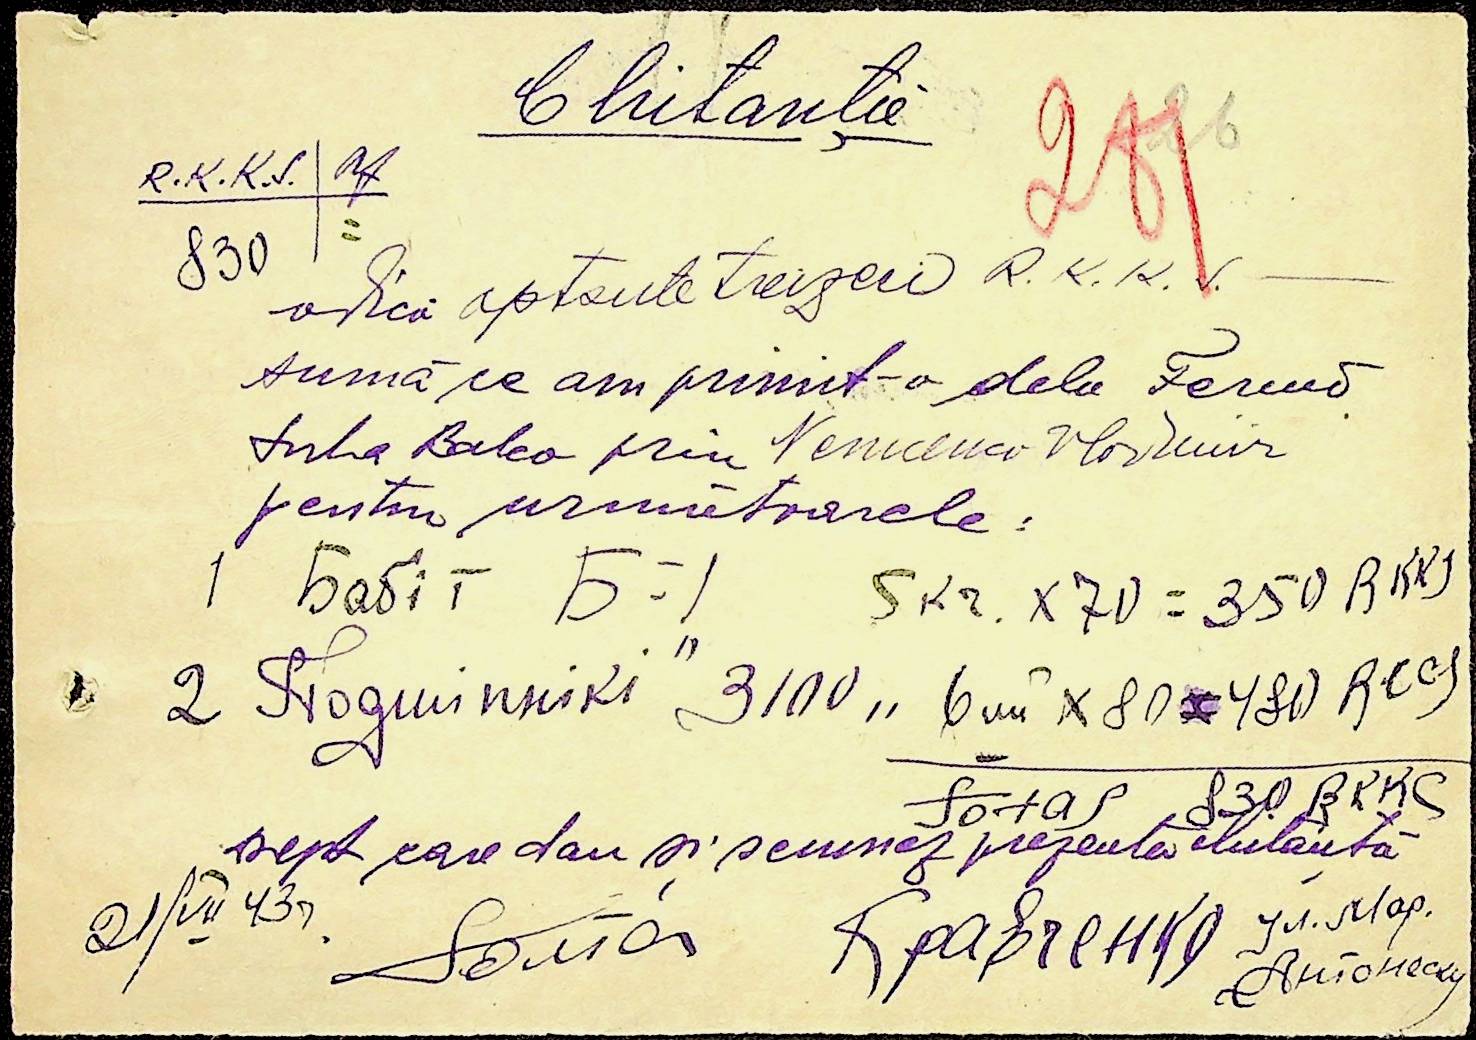 Chitanție
281 26
R.K.K.S. | pf
830 =
adică optsute treizeci R.K.K.S.
sumă ce am primit-o dela Fermă
Suha Balca prin Nemcenco Vladimir
pentru următoarele:
1 Бабіт Б-1 5 кг. x 70 = 350 RKKS
2 "3100" 6 x 80 = 480 RKKS
830 RKKS
drept care dau și semnez prezenta chitanță
21/VII 43г. Кравченко ул. Мар.
Антонеску